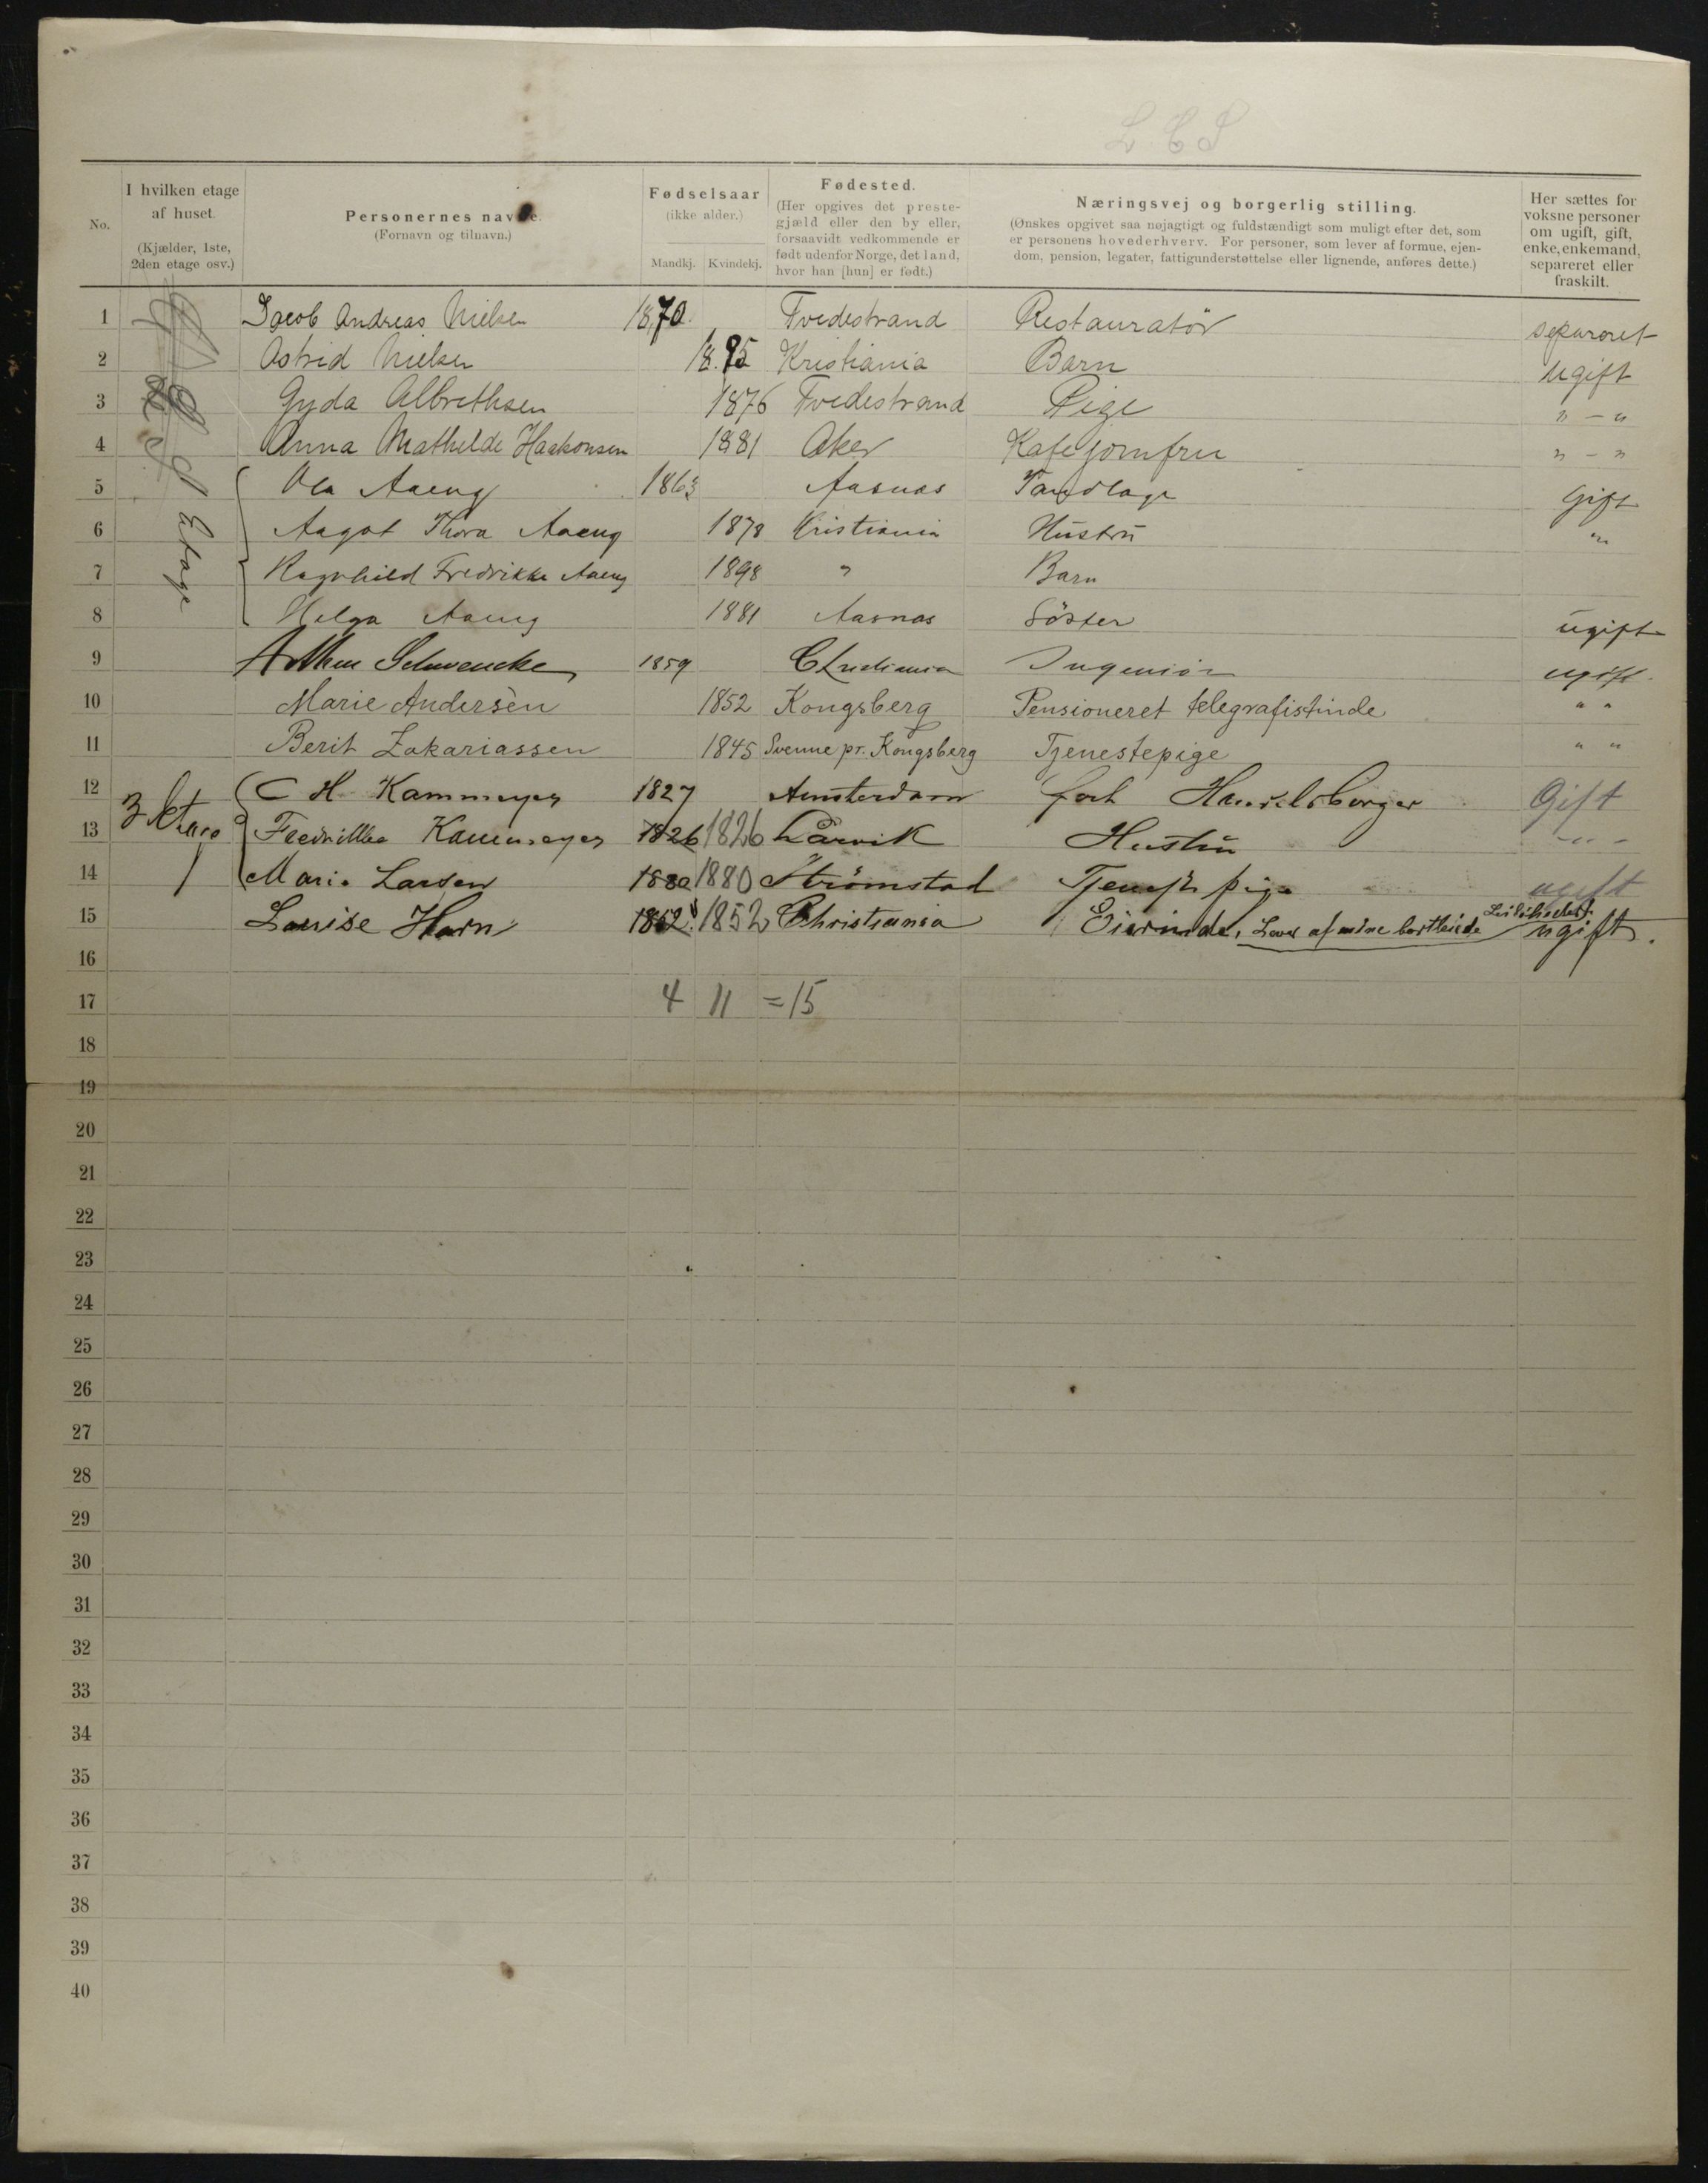 L. C. S
No.
I hvilken etage af huset.
(Kjælder, 1ste, 2den etage osv.)
Personernes navne.
(Fornavn og tilnavn.)
Fødselsaar
(ikke alder.)
Mandkj. Kvindekj.
Fødested.
(Her opgives det prestegjæld eller den by eller, forsaavidt vedkommende er født udenfor Norge, det land, hvor han [hun] er født.)
Næringsvej og borgerlig stilling.
(Ønskes opgivet saa nøjagtigt og fuldstændigt som muligt efter det, som er personens hovederhverv. For personer, som lever af formue, ejendom, pension, legater, fattigunderstøttelse eller lignende, anføres dette.)
Her sættes for voksne personer om ugift, gift, enke, enkemand, separeret eller fraskilt.
1 Jacob Andreas Nielsen 1870. Tvedestrand Restauratør separeret
2 Astrid Nielsen 18.95 Kristiania Barn ugift
3 Gyda Albrethsen 1876 Tvedestrand Pige " - "
4 Anna Mathilde Haakonsen 1881 Aker Kafejomfru " - "
5 Ola Aaeng 1863 Aasnas Tandlæge Gift
6 Etage Aagot Thora Aaeng 1878 Kristiania Hustru "
7 Ragnhild Fredrikke Aaeng 1898 " Barn
8 Helga Aaeng 1881 Aasnas Söster ugift
9 Arthur Schwencke 1859 Christiania Ingeniør ugift.
10 Marie Andersèn 1852 Kongsberg Pensioneret telegrafistinde " "
11 Berit Zakariassen 1845 Svenne pr. Kongsberg Tjenestepige " "
12 C H Kammeyer 1827 Amsterdam Handelsborger Gift
13 3 Fredrikke Kammeyer 1826 1826 Larvik Hustru - " -
14 Marie Larsen 1880 1880 Strömstad Tjenestepige ugift
15 Louise Horn 1852 1852 Christiania Eierinde, Lever af mine bortleiede Leiligheder. ugift.
16
17 4 11 = 15
18
19
20
21
22
23
24
25
26
27
28
29
30
31
32
33
34
35
36
37
38
39
40